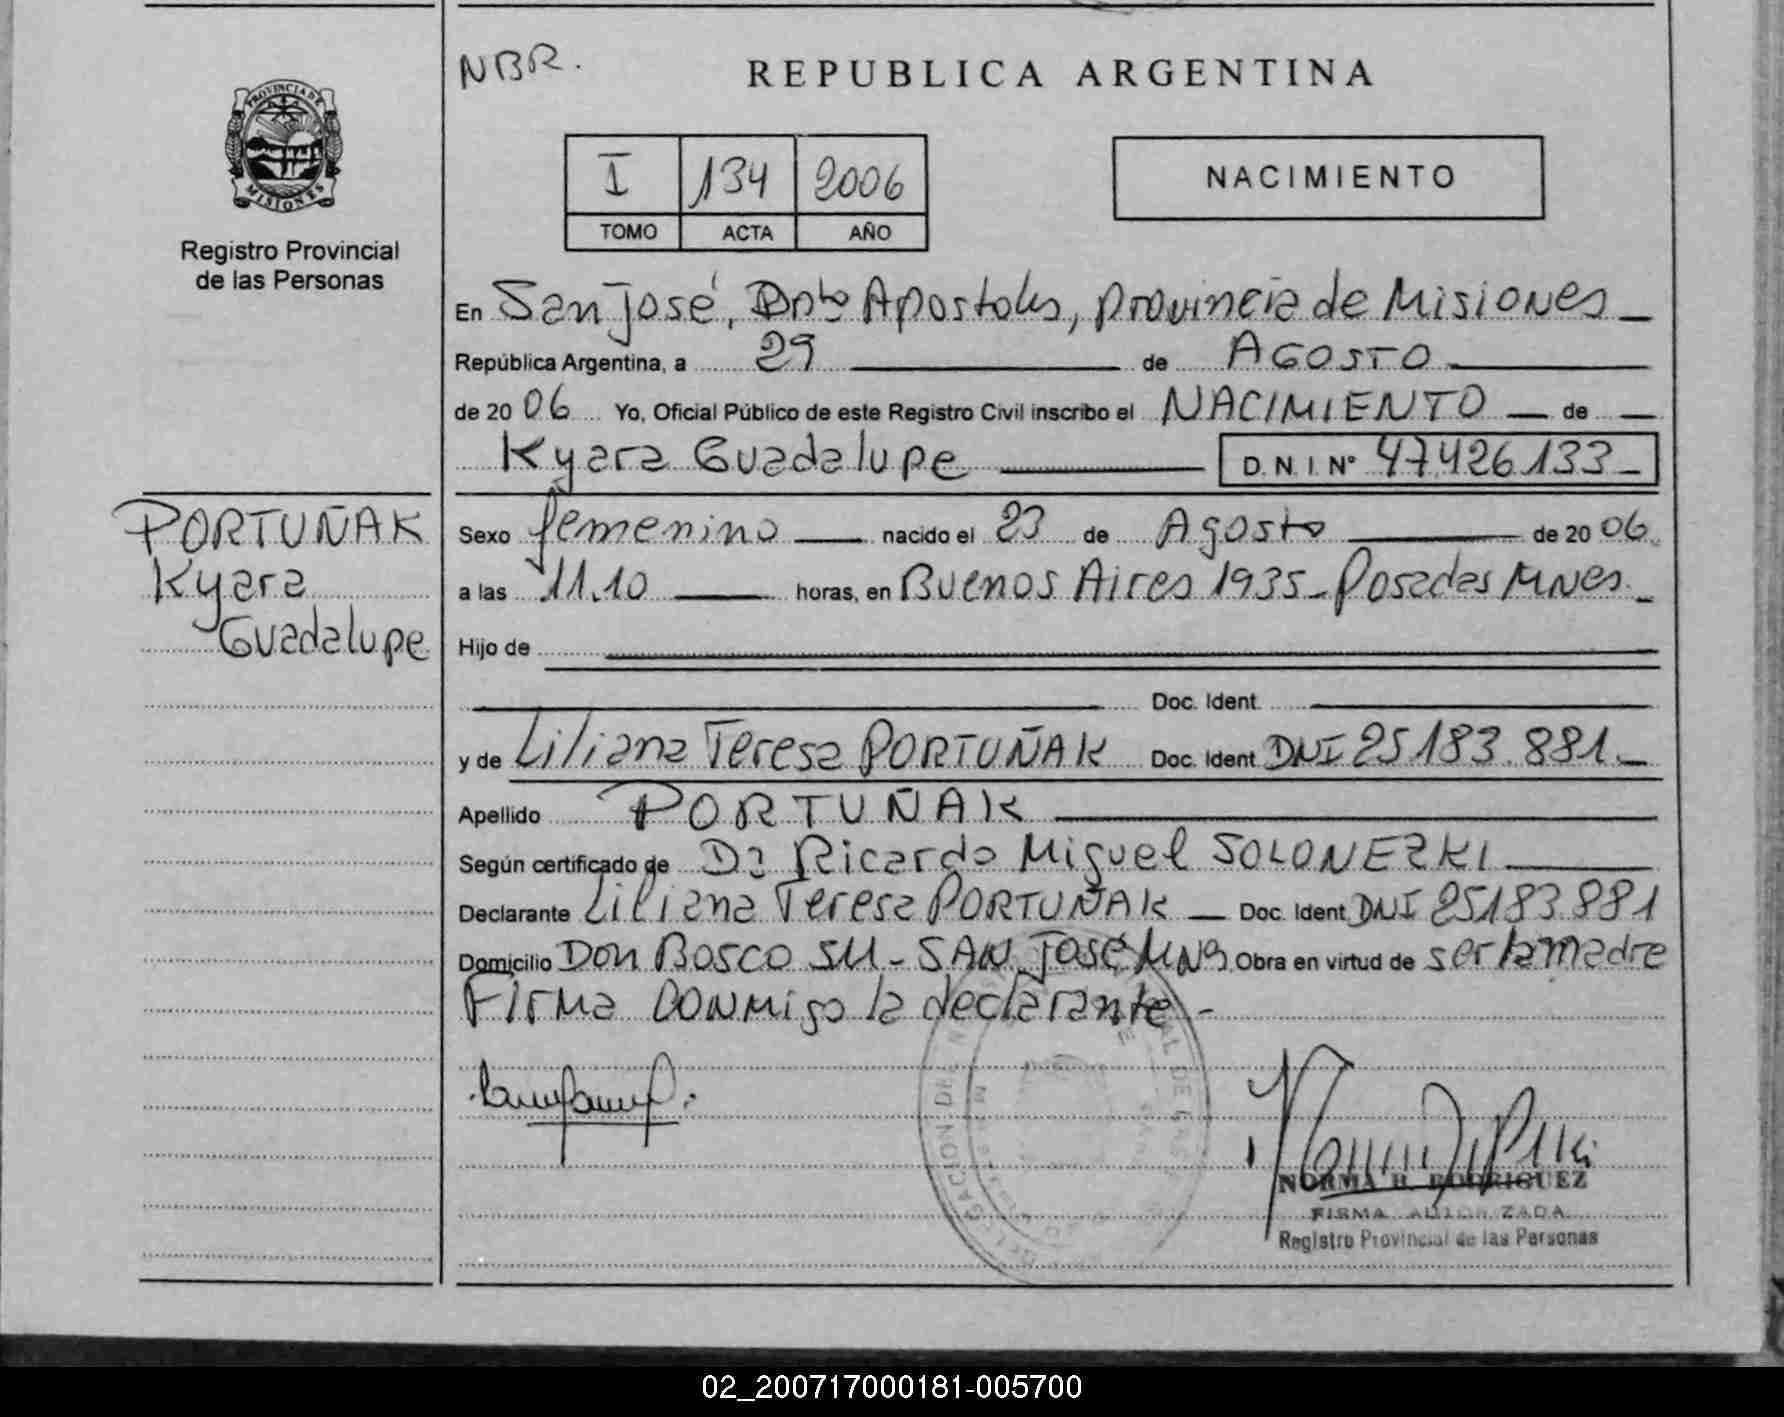 NBR.
REPUBLICA ARGENTINA
PROVINCIA DE
MISIONES
Registro Provincial
de las Personas
I 134 2006
TOMO ACTA AÑO
NACIMIENTO
En San José, Dpto Apostoles, provincia de Misiones
República Argentina, a 29 de AGOSTO
de 20 06 Yo, Oficial Público de este Registro Civil inscribo el NACIMIENTO de
Kyara Guadalupe D.N.I. Nº 47.426.133
PORTUÑAK
Kyara
Guadalupe
Sexo femenino nacido el 23 de Agosto de 20 06
a las 11.10 horas, en Buenos Aires 1935 - Posadas MNes.
Hijo de
Doc. Ident.
y de Liliana Teresa PORTUÑAK Doc. Ident. DNI 25.183.881
Apellido PORTUÑAK
Según certificado de Ricardo Miguel SOLONEZKI
Declarante Liliana Teresa PORTUÑAK Doc. Ident. DNI 25183.881
Domicilio DON BOSCO SN - SAN José MNes Obra en virtud de ser la madre
Firma CONMigo la declarante -
NORMA B. RODRIGUEZ
FIRMA AUTORIZADA
Registro Provincial de las Personas
02_200717000181-005700